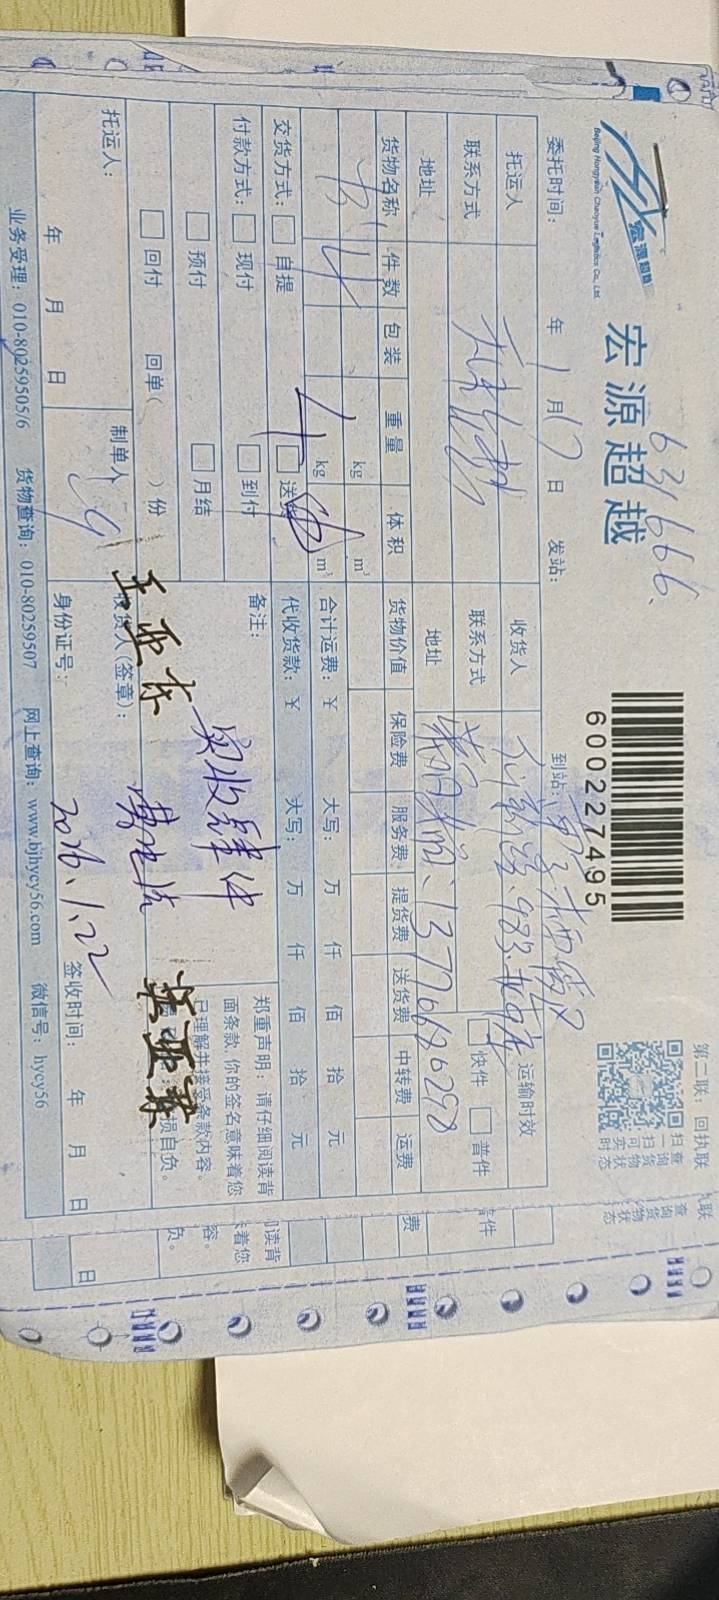 631666.
宏源超越
宏源超越
Beijing Hongyuan Chaoyue Logistics Co., Ltd.
600227495
第二联：回执联
扫一扫
查询货物
可实时状态
委托时间： 年 1 月 17 日 发站： 到站：
托运人 收货人 运输时效
联系方式 联系方式 快件 普件
地址 地址 13770662029
货物名称 件数 包装 重量 体积 货物价值 保险费 服务费 提货费 送货费 中转费 运费
4 kg m³
kg m³
合计运费：￥ 大写： 万 仟 佰 拾 元
交货方式： 自提 送货 代收货款：￥ 大写： 万 仟 佰 拾 元
付款方式： 现付 到付 备注：
预付 月结 实收肆件
回付 回单( )份
郑重声明：请仔细阅读背
面条款，你的签名意味着您
已理解并接受条款内容。
损自负。
托运人： 制单人 收货人(签章)：
年 月 日 身份证号： 2026.1.22 签收时间： 年 月 日
业务受理：010-80259505/6 货物查询：010-80259507 网上查询：www.bjhycy56.com 微信号：hycy56